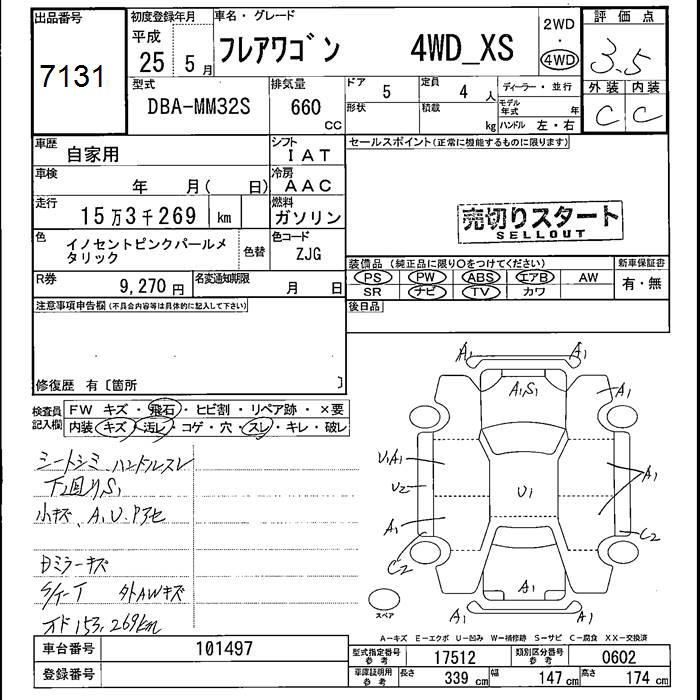 出品番号
7131
初度登録年月
平成
25 5月
車名・グレード
フレアワゴン 4WD_XS
2WD
4WD
評価点
3.5
外装 内装
C C
型式
DBA-MM32S
排気量
660
CC
ドア
5
定員
4人
形状
積載
kg
ディーラー・並行
モデル年式 年
ハンドル 左・右
車歴
自家用
シフト
IAT
セールスポイント(正常に機能するものに限ります)
車検
年 月( 日)
冷房
AAC
走行
15万3千269 km
燃料
ガソリン
売切りスタート
SELLOUT
色
イノセントピンクパールメタリック
色替
色コード
ZJG
装備品 (純正品に限り〇をつけてください)
新車保証書
PS PW ABS エアB AW
有・無
SR ナビ TV カワ
R券
9,270円
名変通知期限
月 日
後日品
注意事項申告欄(不具合内容等は具体的に記入して下さい)
修復歴 有〔箇所 〕
検査員記入欄
FW キズ・飛石・ヒビ割・リペア跡・×要
内装 キズ・汚レ・コゲ・穴・スレ・キレ・破レ
シートシミ、ハンドルスレ
下廻りS1
小キズ、A.U.Pアセ
Dミラーキズ
外AWキズ
メド153,269km
A1 A1
A1S1 A1
U1A1
U2 U1 A1
A1
C2 C2
A1
A1 A1
スペア
A-キズ E-エクボ U-凹み W-補修跡 S-サビ C-腐食 XX-交換済
車台番号
101497
登録番号
型式指定番号
参考
17512
類別区分番号
参考
0602
車庫証明用
参考
長さ
339 cm
幅
147 cm
高さ
174 cm